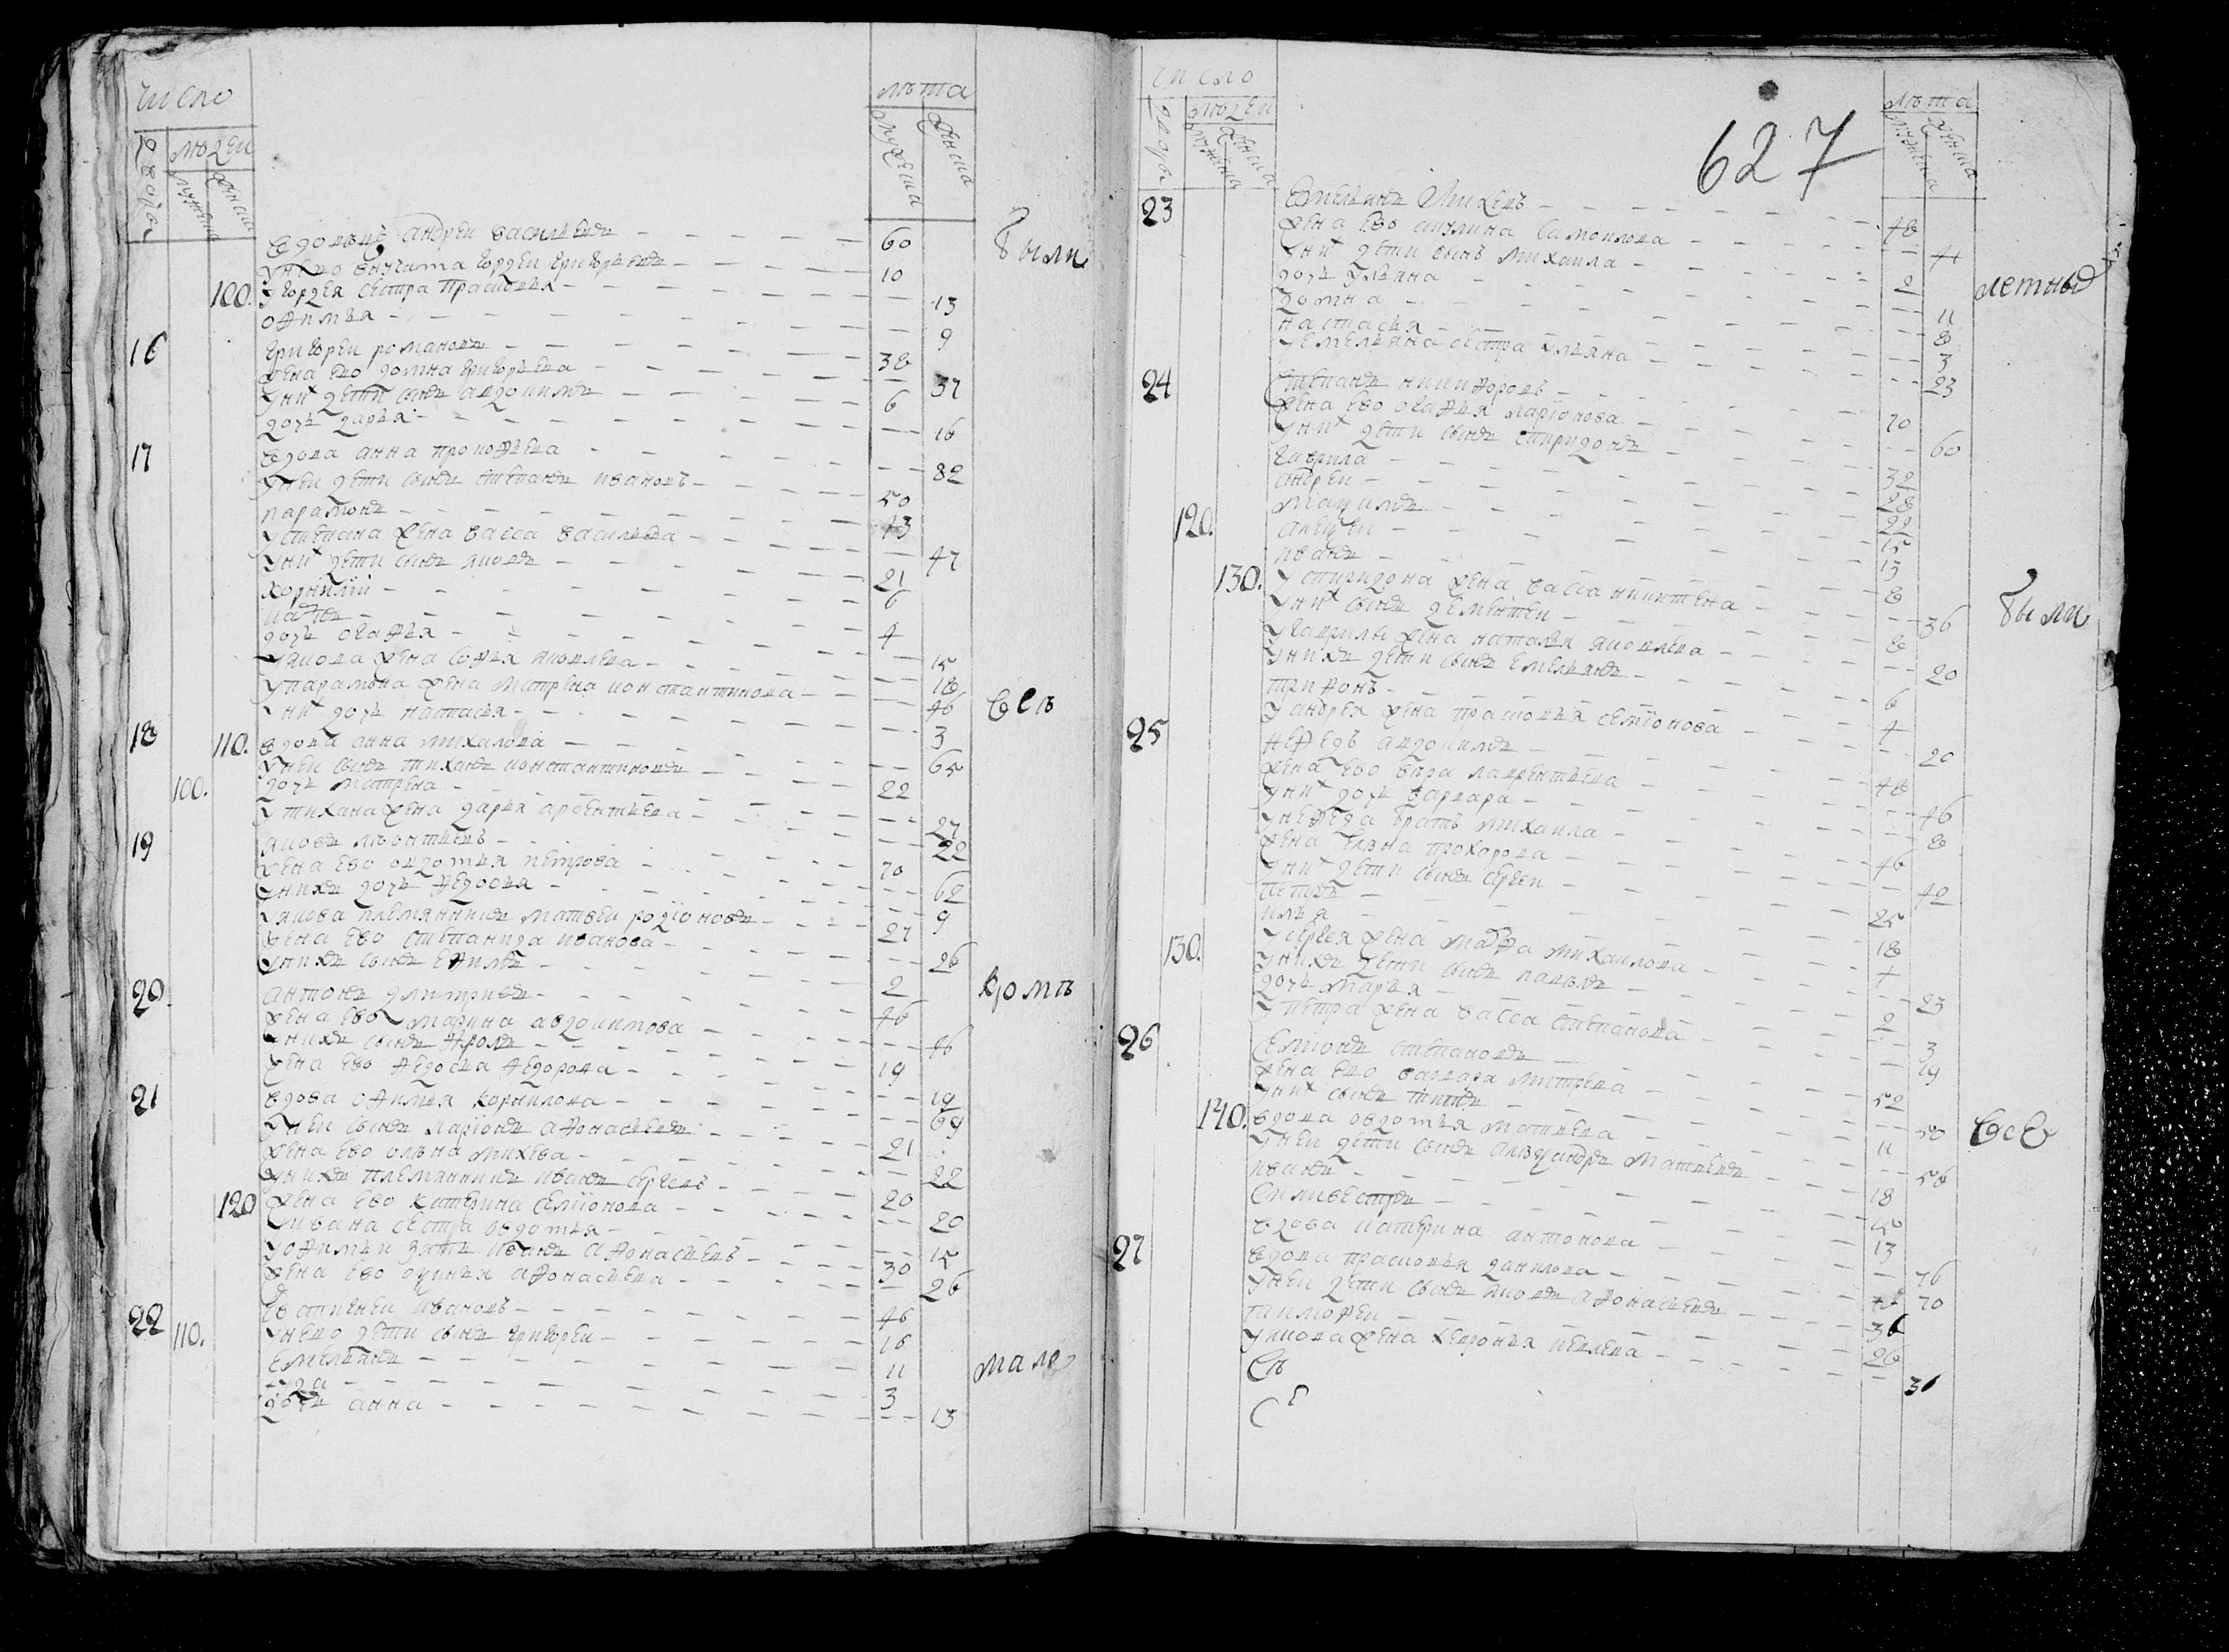 число
лѣта
двора
людей
мужеска
женска
мужеска
женска
вдовец андреи василевъ 60
у него внучата гордеи григорьевъ 10
были
100. у гордея сестра прасковья 13
офимья 9
16 григореи романовъ 38
жена ево домна григорьева 37
у них дети сынъ авдокимъ 6
дочь дарья 16
17 вдова анна прокофьева 82
у неи дети сынъ степанъ ивановъ 50
парамонъ 43
у степана жена васса василева 47
у них дети сынъ яковъ 21
корнилiй 6
4
дочь агафья 15
у якова жена софья яковлева 18
у парамона жена матрена константинова 46
всѣ
у них дочь настасья 3
18 110. вдова анна михалова 65
у неи сынъ тиханъ константиновъ 22
100. дочь матрена 27
у тихана жена дарья арсентьева 22
19 яковъ лѣонтьевъ 70
жена ево овдотья петрова 62
у нихъ дочь федосья 9
у якова племянникъ матвеи родiоновъ 27
жена ево степанида иванова 26
у нихъ сынъ ефимъ 2
кромѣ
20. антонъ дмитриевъ 46
жена ево марина авдокимова 46
у нихъ сынъ фролъ 19
жена ево федосья федорова 19
21 вдова офимья корнилова 69
у неи сынъ ларiонъ афонасьевъ 21
жена ево олѣна михева 22
у нихъ племянникъ иванъ сергеевъ 20
120 жена ево катерина семiонова 20
у ивана сестра овдотья 15
у офимьи зять иванъ афонасьевъ 30
жена ево афонасьева 26
22 евстигнеи ивановъ 46
110. у нево дети сынъ григореи 16
емельянъ 11
мало
3
дочь анна 13
627
число
лѣта
двора
людеи
мужеска
женска
мужеска
женска
23 емельянъ михевъ 48
жена ево акулина самоилова 41
у них дети сынъ михаила 2
летныхъ
дочь ульяна 11
домна 8
настасья 3
у емельяна сестра ульяна 23
24 степанъ никифоровъ 70
жена ево агафья ларiонова 60
у них дети сынъ спиридонъ 32
гаврила 28
андреи 22
максимъ 15
120. алексеи 13
иванъ 8
130. у спиридона жена васса никитена 36
были
у них сынъ дементеи 8
у гаврилы жена наталья яковлева 20
у нихъ дети сынъ емельянъ 6
трифонъ 4
у андрея жена прасковья семiонова 20
25 нефедъ авдокимъ 48
жена ево вара лаврентьева 46
у них дочь варвара 8
у нефеда братъ михаила 46
жена елѣна прохорова 42
у них дети сынъ сергеи 25
петръ 18
илья 4
130. у сергея жена марфа михаилова 23
у нихъ дети сынъ павелъ 2
дочь марья 3
у петра жена васса степанова 19
26 семионъ степановъ 52
жена ево варвара митрева 50
у них сынъ титъ 11
140. вдова овдотья матвева 56
всѣ
у неи дети сынъ алѣксандръ матвевъ 18
иванъ 15
силивестръ 13
вдова катерина антонова 76
27 вдова прасковья данилова 70
у неи дети сынъ яковъ афонасьевъ 36
тимофеи 26
у якова жена хеврония 36